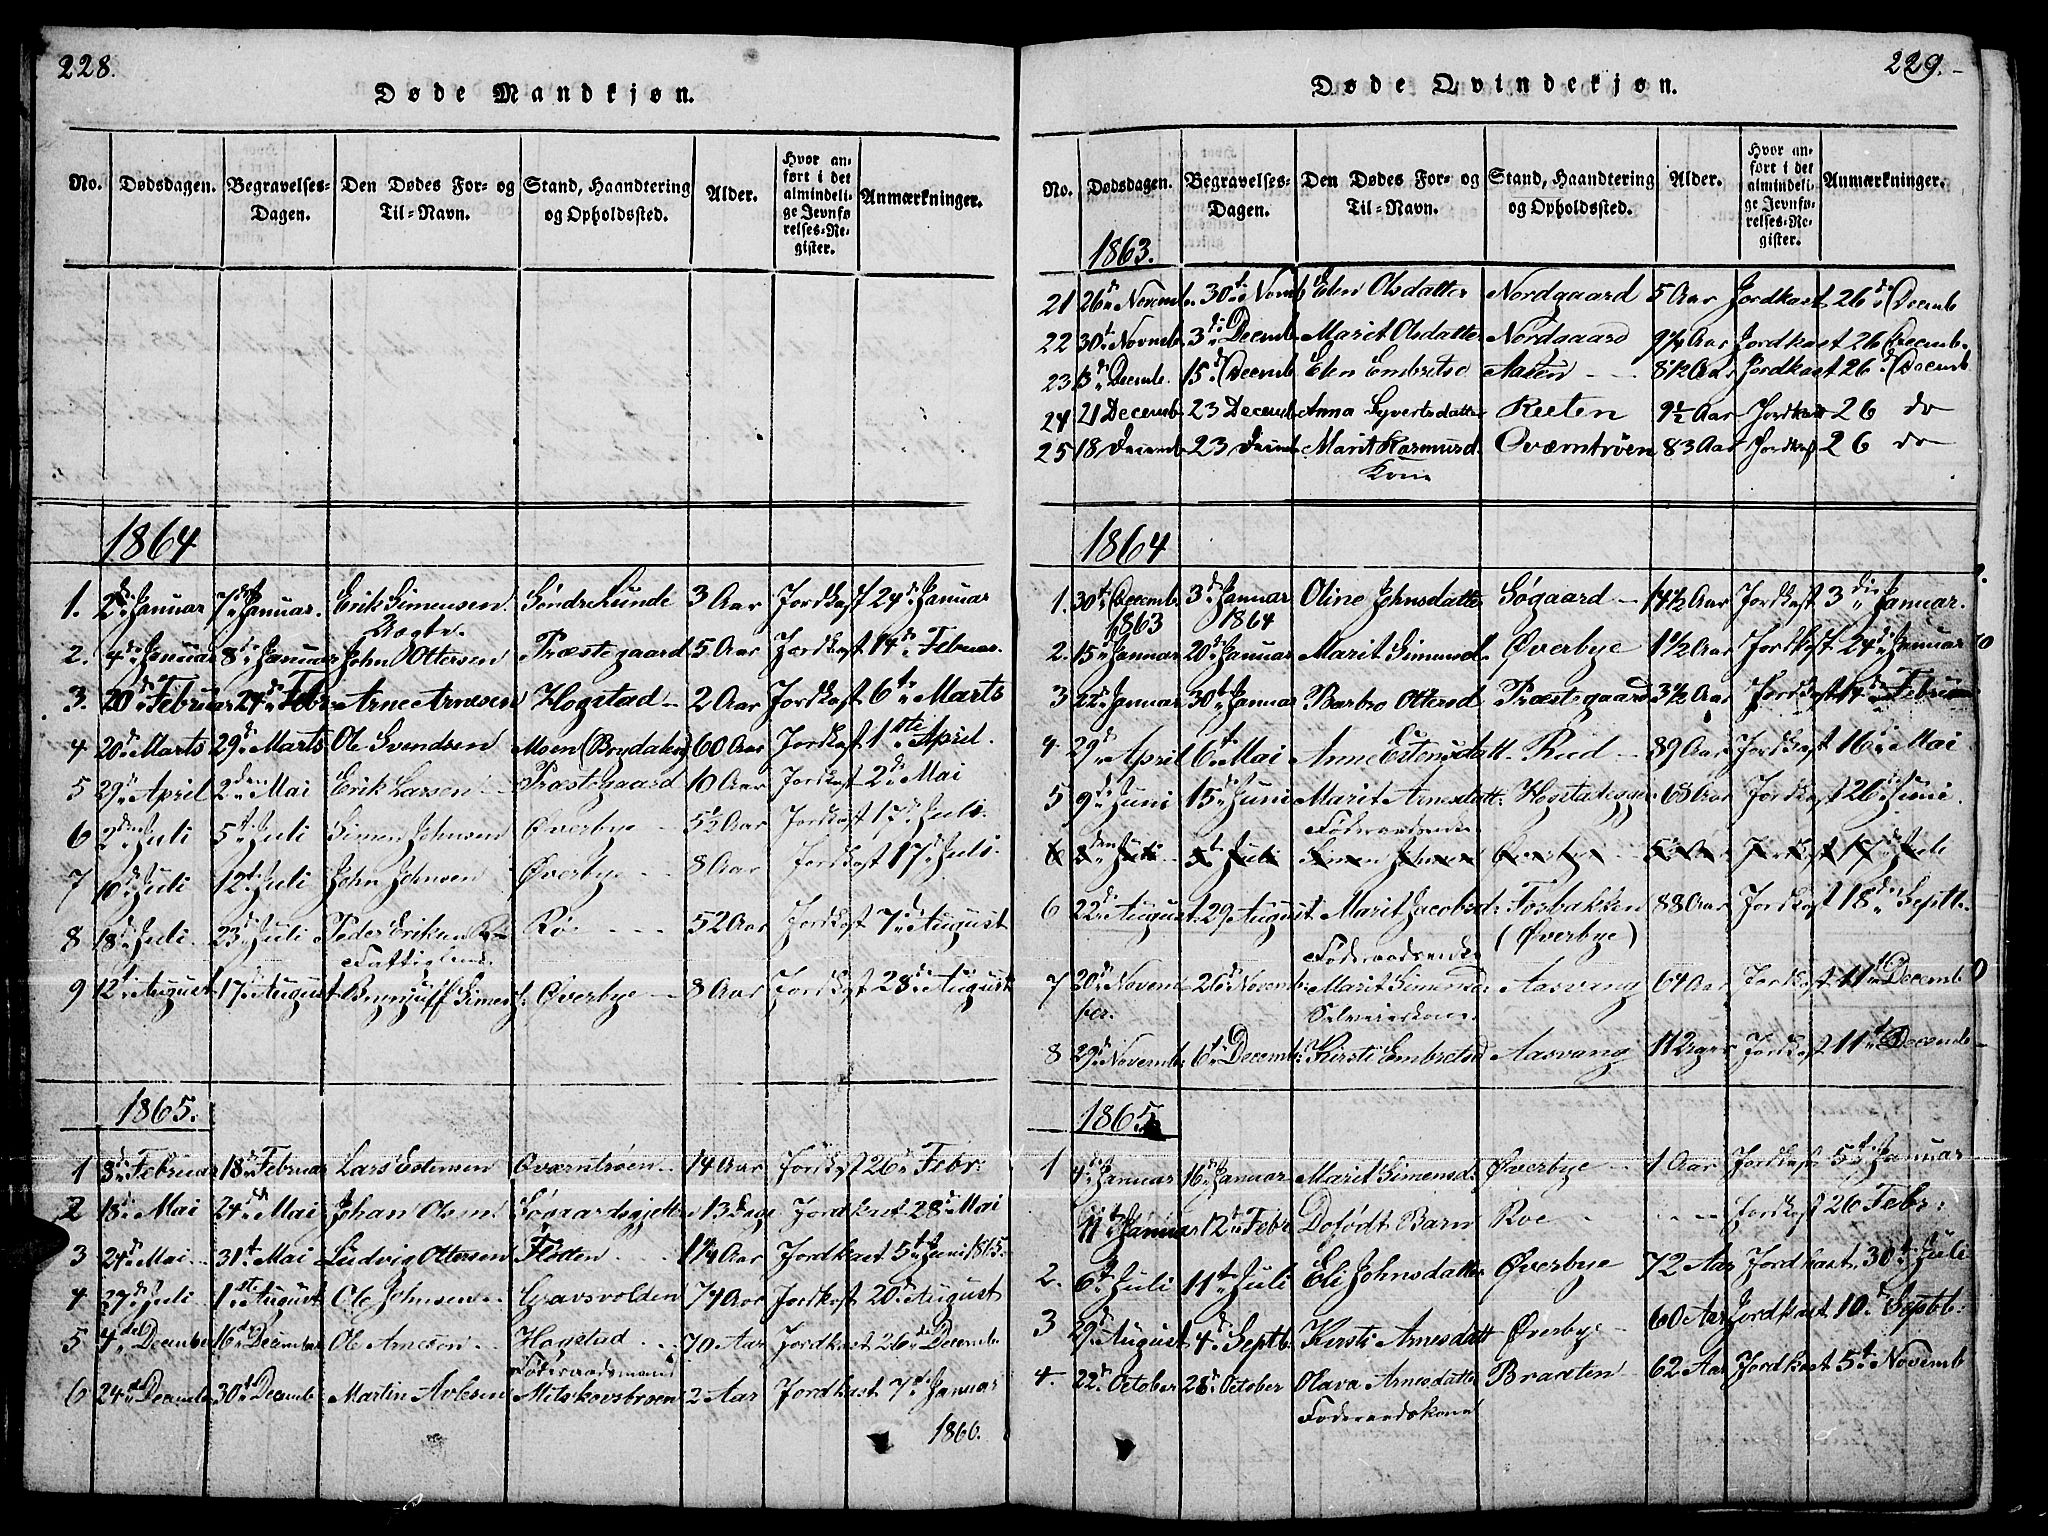 228.
Døde Mandkjøn.
No. Dødsdagen. Begravelses-Dagen. Den Dødes For- og Til-Navn. Stand, Haandtering og Opholdssted. Alder. Hvor anført i det almindelige Jevnførelses-Register. Anmærkninger.
1864
1. 2d Januar 7d Januar. Erik Simensen Søndre Lunde 3 Aar Jordkast 24d Januar
2. 4d Januar 8d Januar John Ottersen Præstegaard 5 Aar Jordkast 14d Februar.
3. 20d Februar 24d Febr Arne Arnesen Hogstad 2 Aar Jordkast 6t Marts
4 20d Marts 29d Marts Ole Svendsen Moen 60 Aar Jordkast 1ste April.
5 29d April 2den Mai Erik Larsen Præstegaard 10 Aar Jordkast 2d Mai
6 2den Juli 5t Juli Simen Johnsen Øverbye 5½ Aar Jordkast 17d Juli.
7 10d Juli 12t Juli John Johnsen Øverbye 8 Aar Jordkast 17d Juli.
8 18d Juli 23d Juli Peder Eriksen Røe 52 Aar Jordkast 7d August
9 12t August 17d August Brynjulf Simens: Øverbye 8 Aar Jordkast 28d August
1865.
1 8d Februar 18d Februar Lars Estensen Qværntrøen 14 Aar Jordkast 26d Febr:
2 18d Mai 24d Mai Johan Olsen Søgaards 13 Dage Jordkast 28d Mai
3 24d Mai 31t Mai Ludvig Ottersen Fløten 1¼ Aar Jordkast 5t Juni 1865.
4 27d Juli 1ste August Ole Johnsen Gravsvolden 74 Aar Jordkast 20d August
5 4de December 16d December Ole Arnesen Hogstad 70 Aar Jordkast 26de Decemb
Føderaadsmand
6 24d Decemb 30t Decemb Martin Avlesen 2 Aar Jordkast 7d Januar
1866.
229.
Døde Qvindekjøn.
No. Dødsdagen. Begravelses-Dagen. Den Dødes For- og Til-Navn. Stand, Haandtering og Opholdssted. Alder. Hvor anført i det almindelige Jevnførelses-Register. Anmærkninger.
1863.
21 26d Novemb. 30t Novmb Elen Olsdatter Nordgaard 5 Aar Jordkast 26d Decemb
22 30t Novmb. 3die Decmb. Marit Olsdatter Nordgaard 9¼ Aar Jordkast 26 Decemb.
23 13d Decmb. 15d Decemb. Elen Embretsd Aasen 8½ Aar Jordkast 26d Decemb
24 21 Decemb 23 Decemb Anna Syvertsdatter Reeten 9½ Aar Jordkast 26 do
25 18 Decemb 23 Decmb. Marit Rasmusd. Qværntrøen 83 Aar Jordkast 26 do
Kone
1864
1. 30t Decemb 3d Januar Oline Johnsdatter Søgaard 14½ Aar Jordkast 3die Januar.
1863 1864
2. 15d Januar 20d Januar Marit Simensd. Øverbye 1½ Aar Jordkast 24d Januar
3 22d Januar 30t Januar Barbro Ottersd Præstegaard 3½ Aar Jordkast 14d Februar
4. 29d April 6t Mai Anne Estensdatt. Rud 89 Aar Jordkast 16d Mai
5 9d Juni 15d Juni Marit Arnesdatt. 68 Aar Jordkast 26d Juni.
6 2den Juli 5t Juli Simen Johnsen Øverbye 5½ Aar Jordkast 17d Juli
6 22d August 29 August Marit Jacobsd: Fosbakken 88 Aar Jordkast 18d Septb.
(Øverbye)
7 20d Novem- 26d Novemb: Marit Simensd Aasvang 64 Aar Jordkast 11t Decemb
ber.
8 29d Novemb: 6t Decemb: Kirsti Embretsd Aasvang Jordkast 11t Decemb
1865.
1 4de Januar 16d Januar Marit Simensd: Øverbye 1 Aar Jordkast 5t Januar
11t Januar 12t Febr Dofødt Barn Roe Jordkast 26 Febr:
2. 6t Juli 11t Juli Eli Johnsdatter Øverbye 72 Aar Jordkast 30t Juli
3 29d August 4d Septb. Kirsti Arnesdatt Øverbye 60 Aar Jordkast 10d Septb:
4. 22d October 28d October Olava Arnesdatter Braaten 62 Aar Jordkast 5t Novemb
Føderaadskone